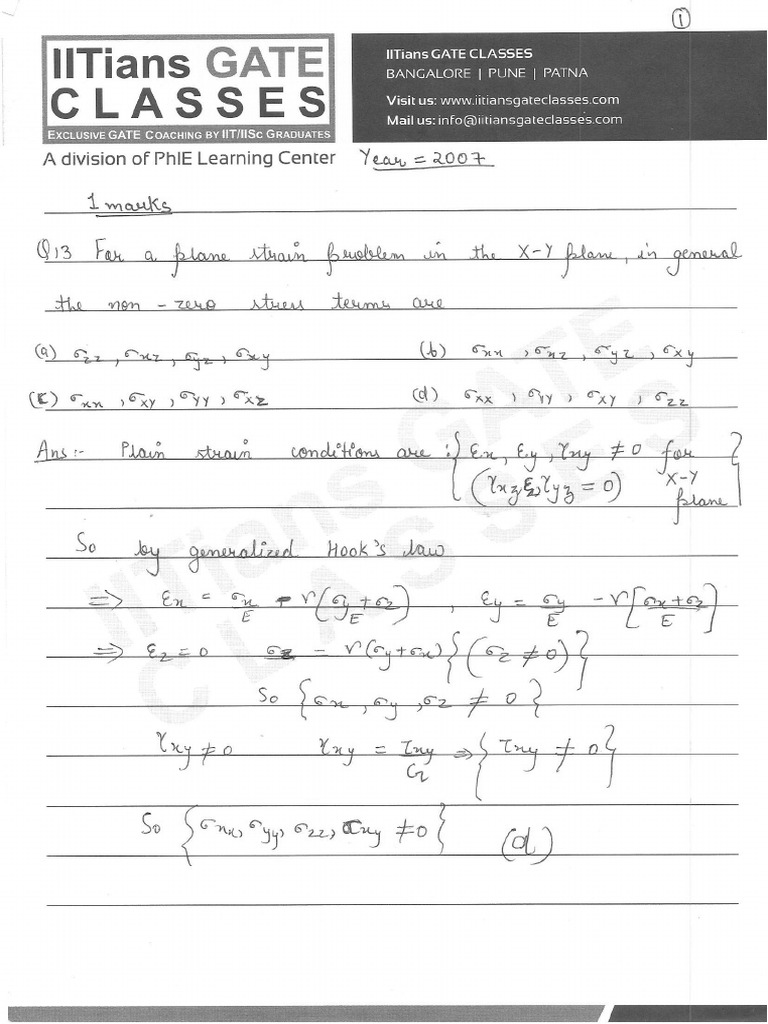 ①
IITians GATE
CLASSES
EXCLUSIVE GATE COACHING BY IIT/IISc GRADUATES
A division of PhIE Learning Center
IITians GATE CLASSES
BANGALORE | PUNE | PATNA
Visit us: www.iitiansgateclasses.com
Mail us: info@iitiansgateclasses.com
Year = 2007
1 marks
Q13 For a plane strain problem in the X-Y plane, in general
the non-zero stress terms are
(a) σzz, σxz, σyz, σxy (b) σxx, σxz, σyz, σxy
(c) σxx, σxy, σyy, σxz (d) σxx, σyy, σxy, σzz
Ans:- Plain strain conditions are : {εx, εy, γxy ≠ 0 for
(γxz, εz, γyz = 0) X-Y
plane}
So by generalized Hook's law
⇒ εx = σx/E - ν(σy + σz/E), εy = σy/E - ν[σx + σz/E]
⇒ εz = 0 σz = ν(σy + σx) {(σz ≠ 0)}
So {σx, σy, σz ≠ 0}
γxy ≠ 0 γxy = τxy/G ⇒ {τxy ≠ 0}
So {σxx, σyy, σzz, τxy ≠ 0} (d)
IITians GATE
CLASSES